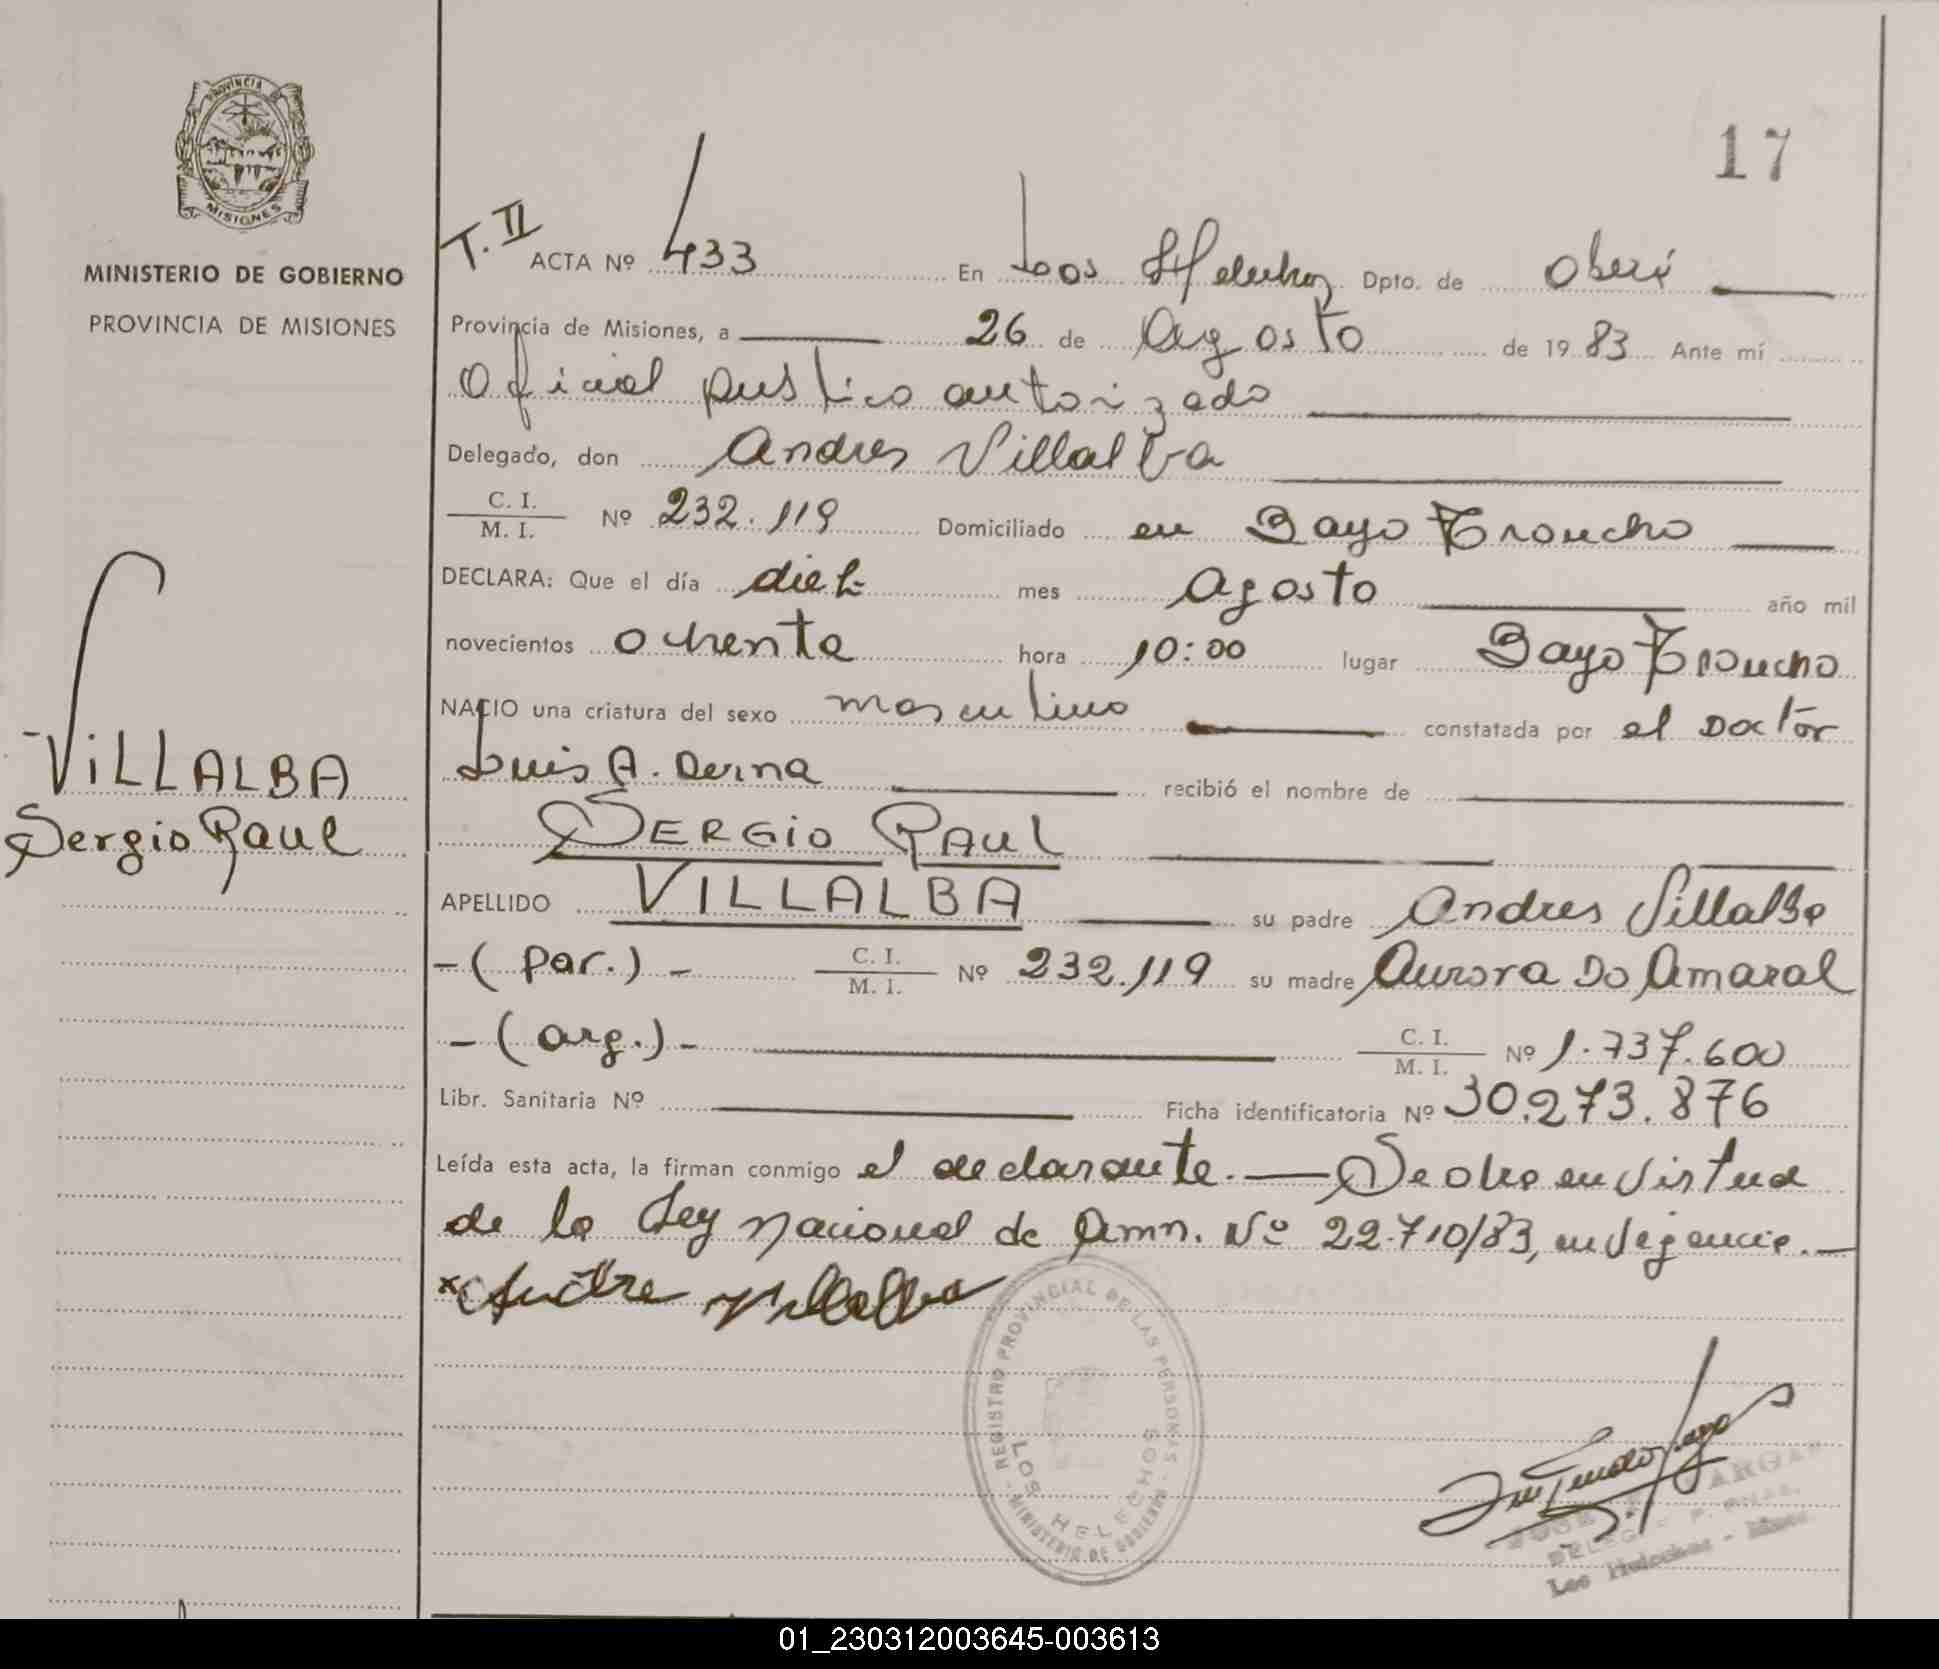 PROVINCIA
MISIONES
MINISTERIO DE GOBIERNO
PROVINCIA DE MISIONES
VILLALBA
Sergio Raul
17
T. II ACTA Nº 433 En Los Helechos Dpto. de Oberá
Provincia de Misiones, a 26 de Agosto de 1983 Ante mí
Oficial publico autorizado
Delegado, don Andres Villalba
C. I.
M. I. Nº 232.119 Domiciliado en Bayo Troncho
DECLARA: Que el día diez mes Agosto año mil
novecientos ochenta hora 10:00 lugar Bayo Troncho
NACIO una criatura del sexo masculino constatada por el Doctor
Luis A. Derna recibió el nombre de
SERGIO RAUL
APELLIDO VILLALBA su padre Andres Villalba
-(par.)- C. I.
M. I. Nº 232.119 su madre Aurora Do Amaral
-(arg.)- C. I.
M. I. Nº 1.737.600
Libr. Sanitaria Nº Ficha identificatoria Nº 30.273.876
Leída esta acta, la firman conmigo el declarante.— Se labra en virtud
de la Ley Nacional de Amn. Nº 22.710/83, en vigencia.—
x Andre Villalba
REGISTRO PROVINCIAL DE LAS PERSONAS
LOS HELECHOS
MINISTERIO DE GOBIERNO
JOSE
Los Helechos - Mnes.
01_230312003645-003613